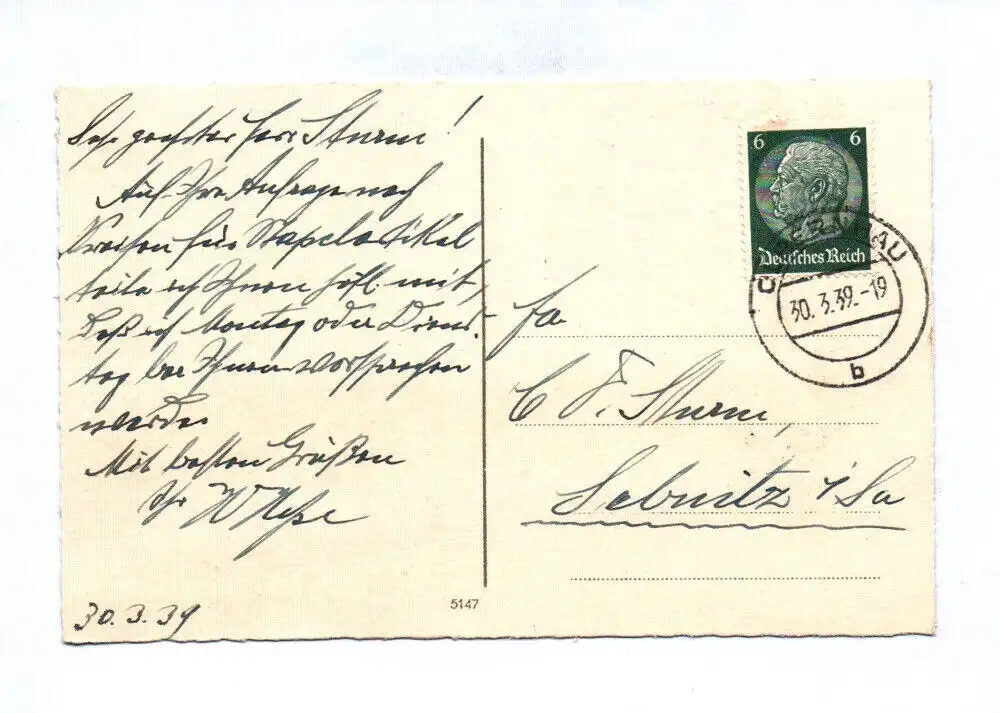 Sehr geehrter Herr Sturm!
Auf Ihre Anfrage nach
Preisen für Stapelartikel
teile ich Ihnen höfl. mit,
daß ich Montag oder Diens-
tag bei Ihnen vorsprechen
werde.
Mit besten Grüßen
Ihr W
30.3.39
5147
6 6
Deutsches Reich
30.3.39.-19
b
Fa
C F. Sturm,
Sebnitz i/Sa